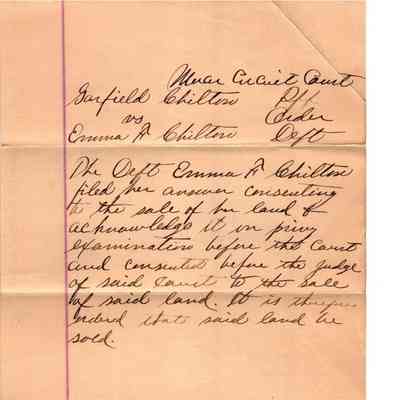 Circuit Court
Garfield Chilton Plff
vs Order
Emma F Chilton Deft
The Deft Emma F Chilton
filed her answer consenting
to the sale of her land &
acknowledge it on privy
examination before the Court
and consented before the judge
of said court to the sale
of said land. It is therefore
ordered that said land be
sold.